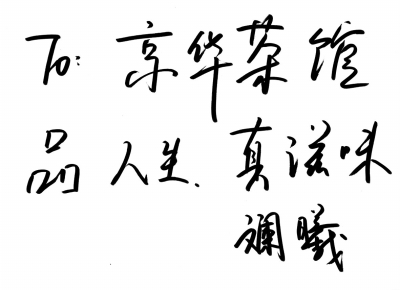 To: 京华茶馆
品人生、真滋味
斓曦